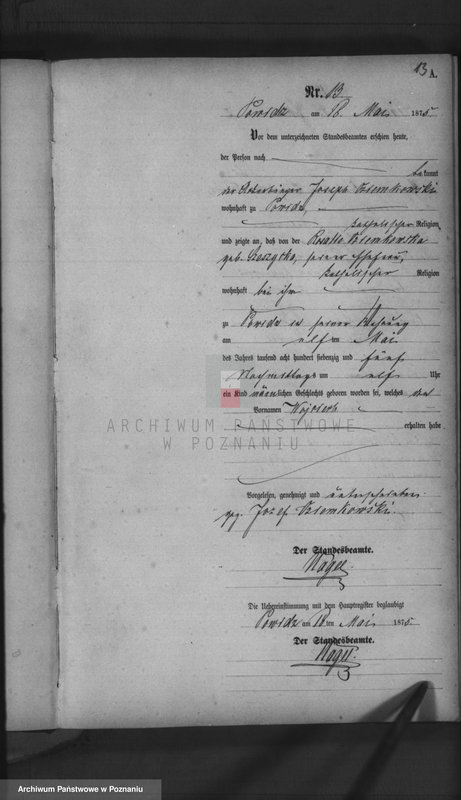 13 A.
Nr. 13
Powidz am 18. Mai 1875
Vor dem unterzeichneten Standesbeamten erschien heute,
der Person nach
be kannt
der Joseph
wohnhaft zu Powidz,
katholischer Religion,
und zeigte an, daß von der
geb. seiner Ehefrau,
katholischer Religion
wohnhaft bei ihm
zu Powidz in seiner Wohnung
am elf ten Mai
des Jahres tausend acht hundert siebenzig und fünf
Nachmittags um elf Uhr
ein Kind männlichen Geschlechts geboren worden sei, welches
Vornamen Wojciech
erhalten habe
ARCHIWUM PAŃSTWOWE
W POZNANIU
Vorgelesen, genehmigt und unterschrieben
gez. Jozef
Der Standesbeamte.
Nagel
Die Uebereinstimmung mit dem Hauptregister beglaubigt
Powidz am 18 ten Mai 1875.
Der Standesbeamte.
Nagel
Archiwum Państwowe w Poznaniu